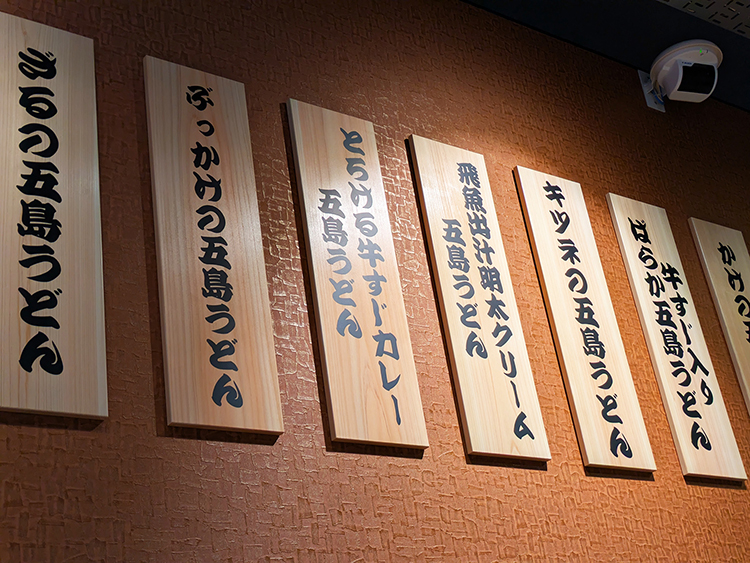 かけの
牛すじ入り
ばらか五島うどん
キツネの五島うどん
飛魚出汁明太クリーム
五島うどん
とろける牛すじカレー
五島うどん
ぶっかけの五島うどん
ざるの五島うどん